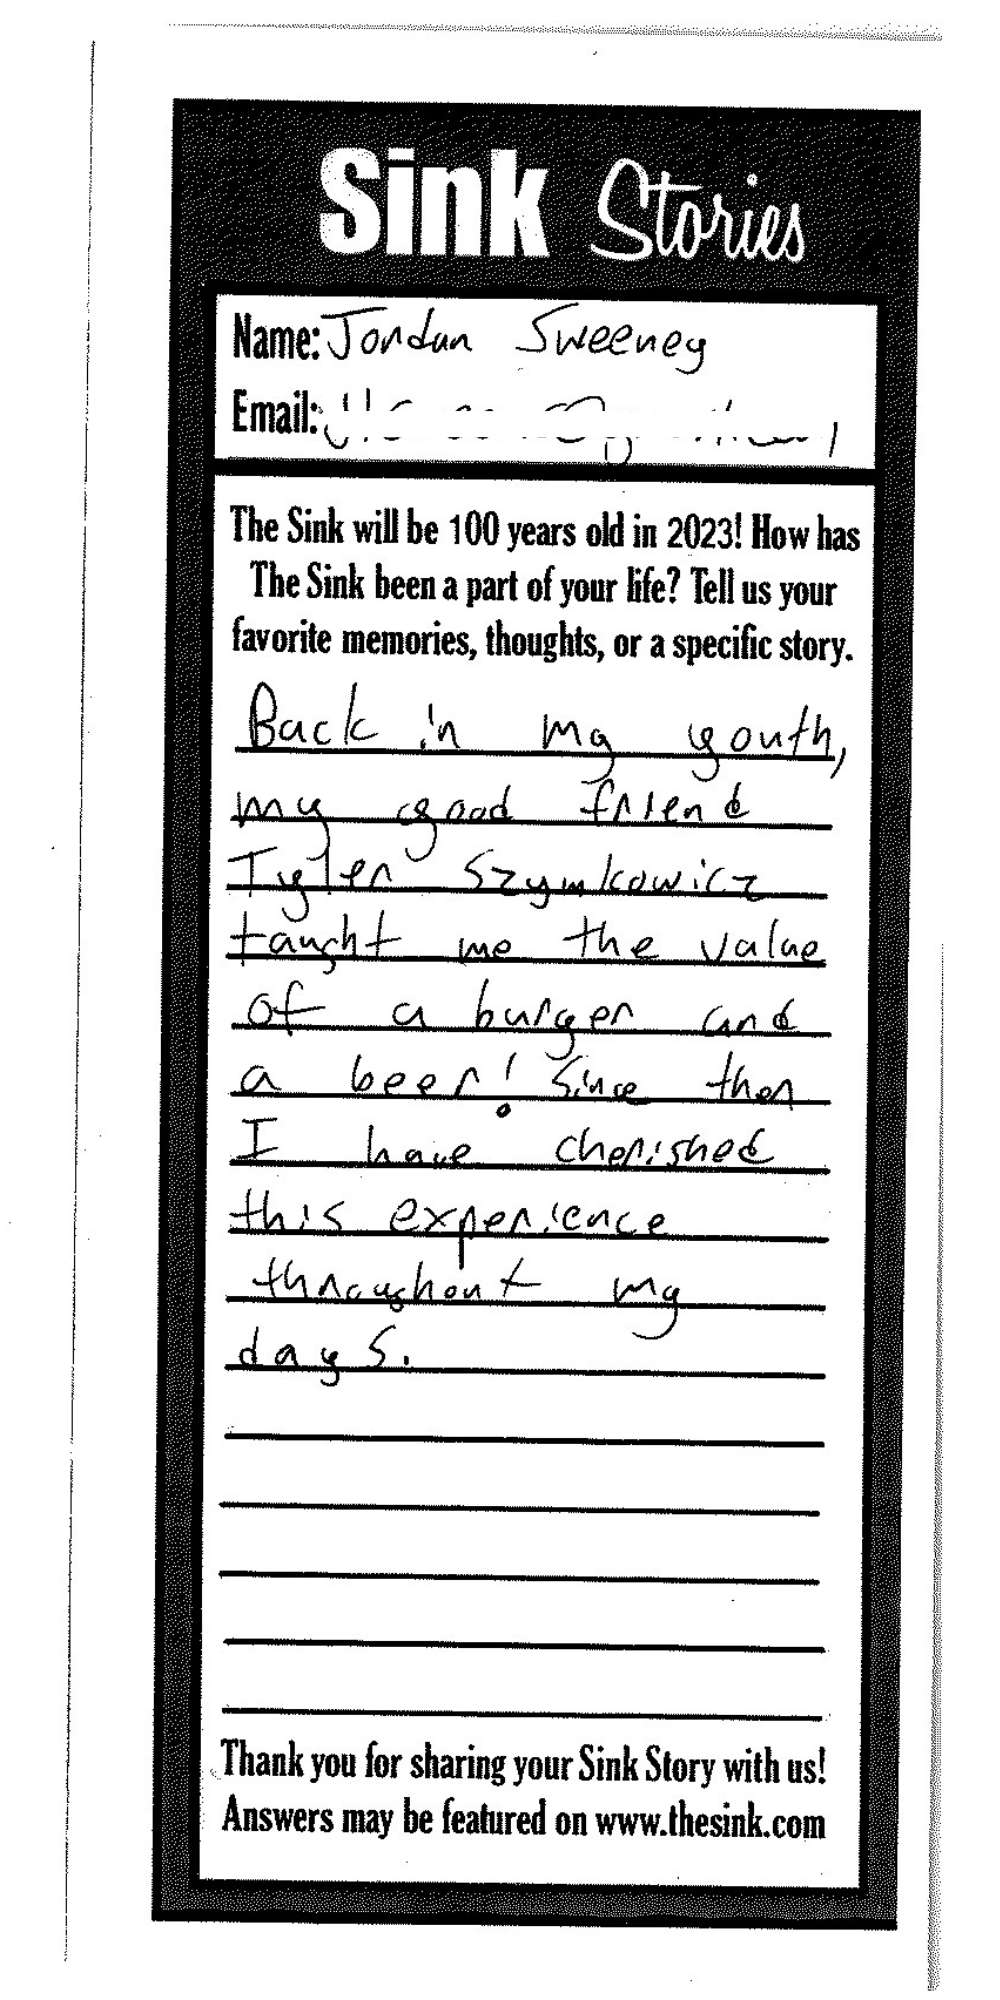 Sink Stories
Name: Jordan Sweeney
Email:
The Sink will be 100 years old in 2023! How has
The Sink been a part of your life? Tell us your
favorite memories, thoughts, or a specific story.
Back in my youth,
my good friend
Tyler Szymkowicz
taught me the value
of a burger and
a beer! Since then
I have cherished
this experience
throughout my
days.
Thank you for sharing your Sink Story with us!
Answers may be featured on www.thesink.com